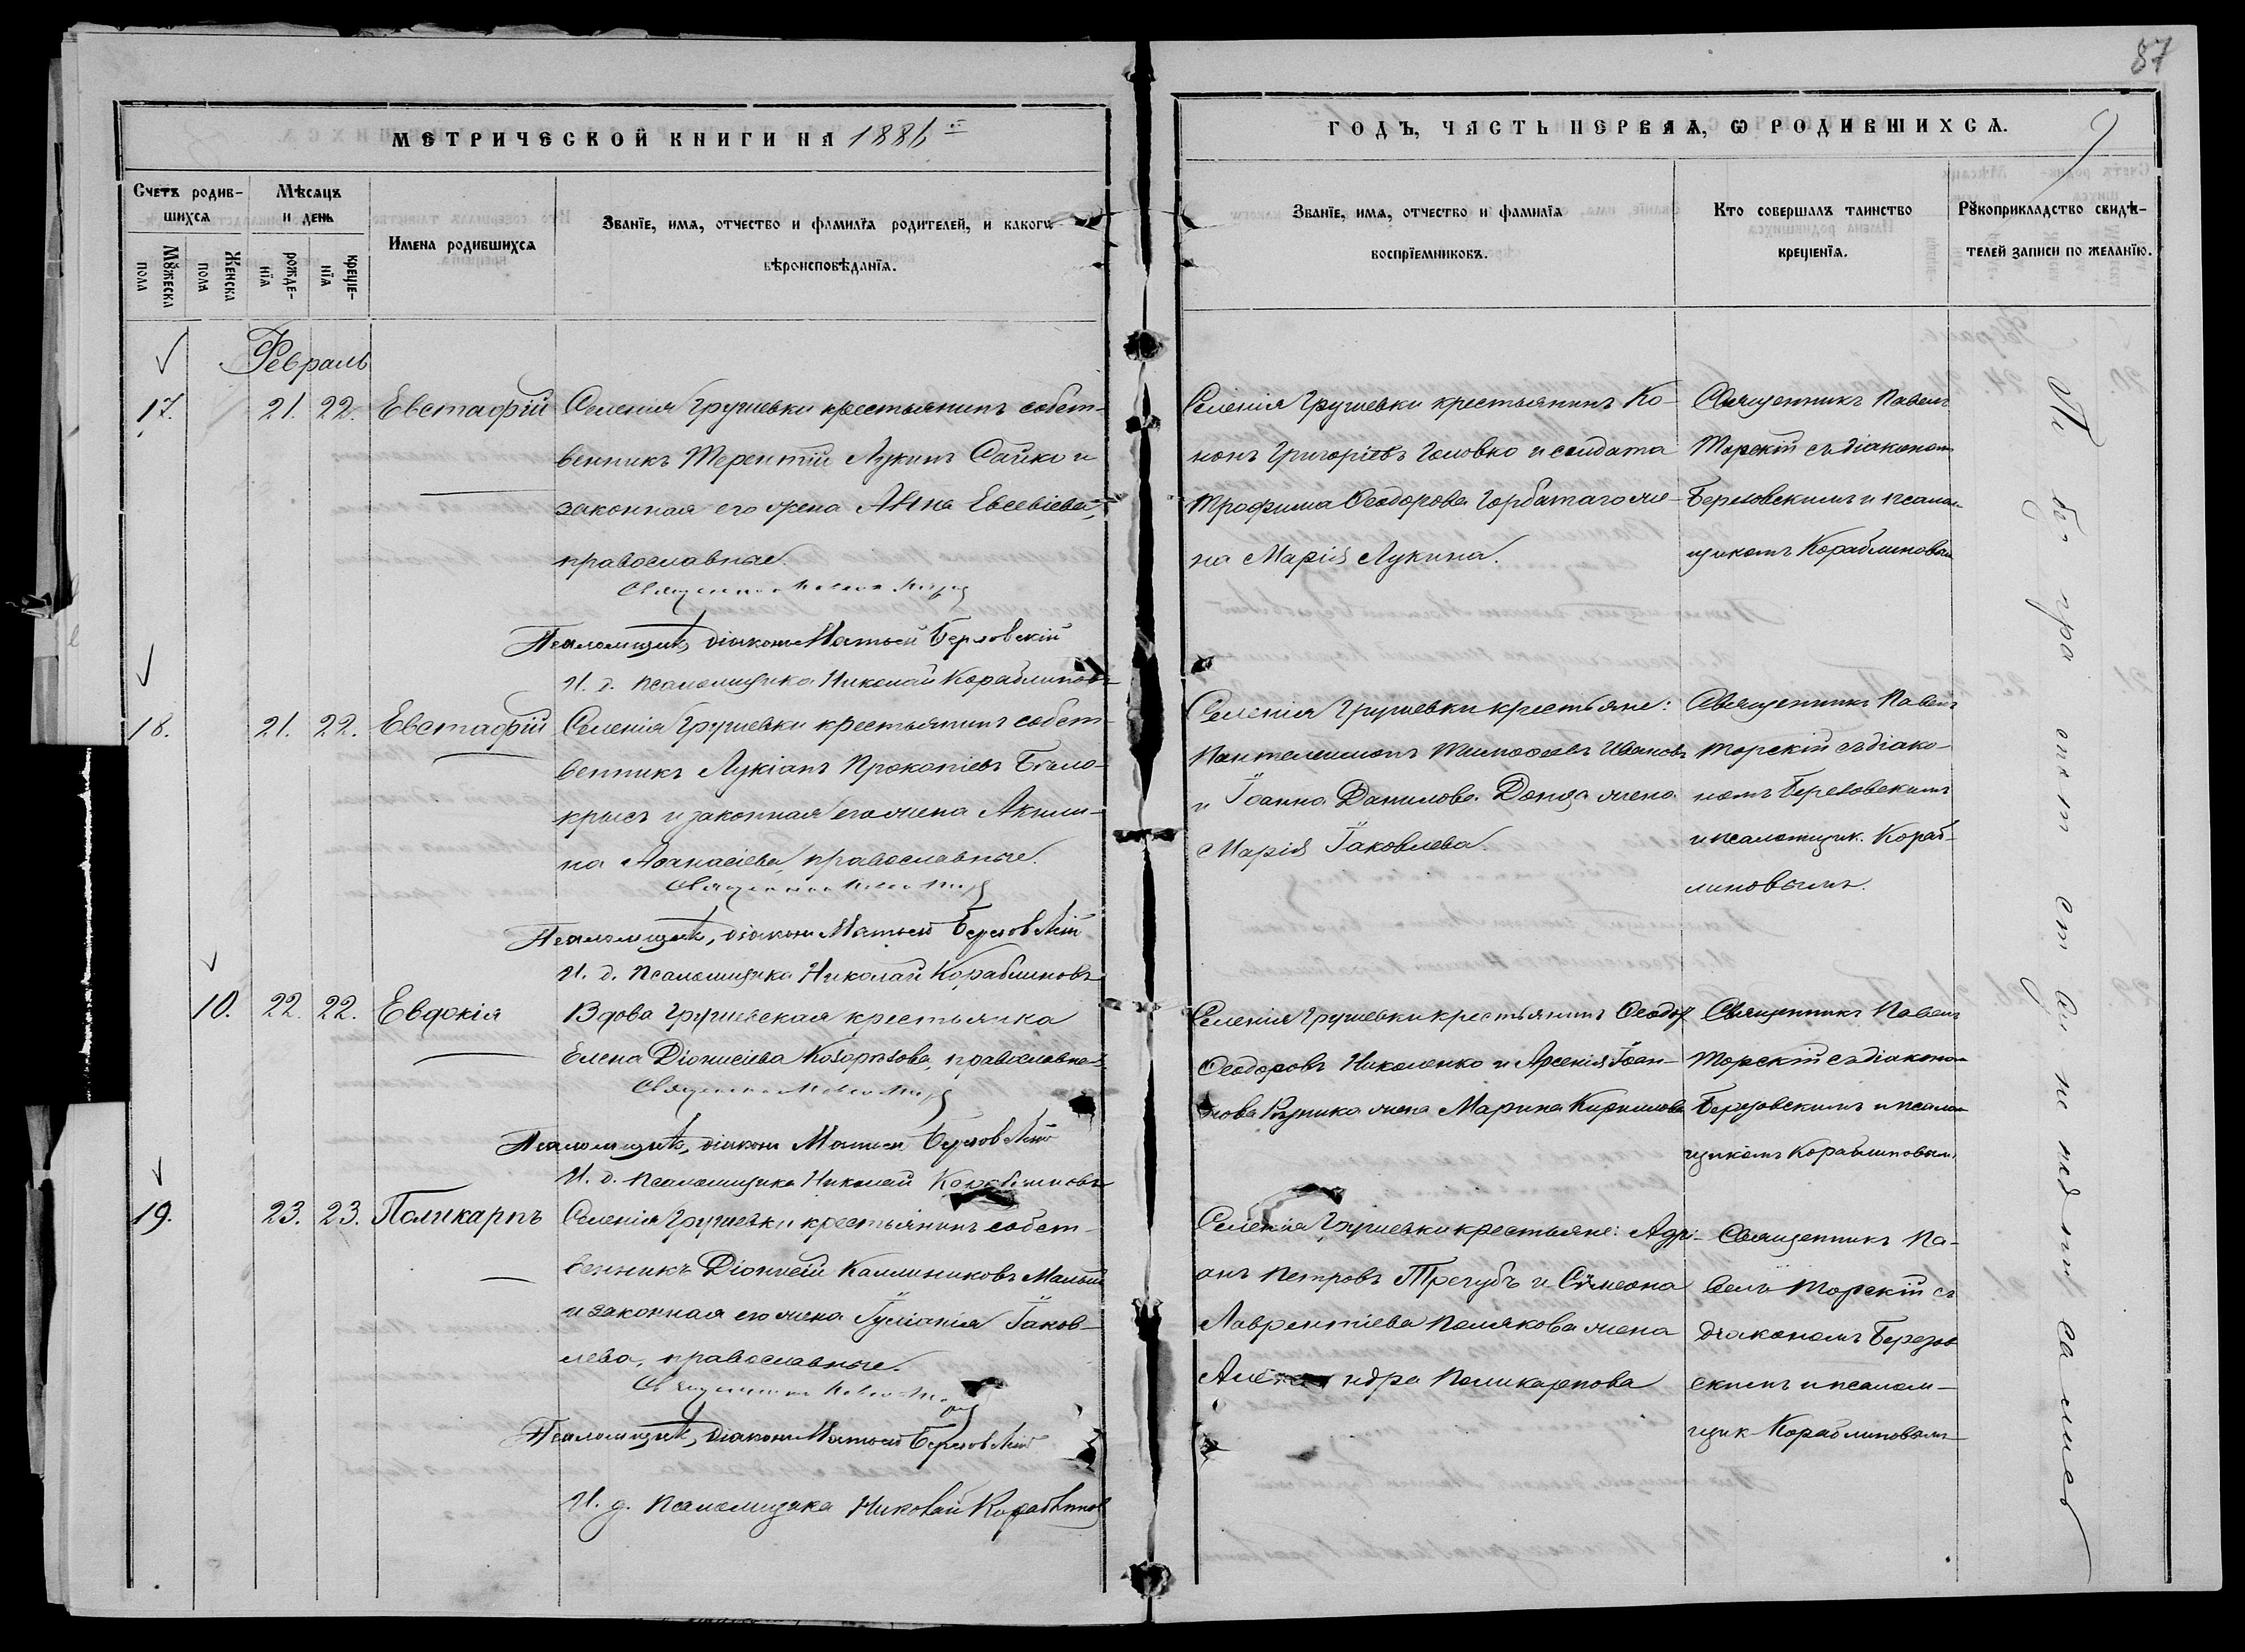 87
МЕТРИЧЕСКОЙ КНИГИ НА 1886 й
ГОДЪ, ЧАСТЬ ПЕРВАЯ, Ѡ РОДИВШИХСѦ.
Счетъ родив-
шихсѧ
Мѣсѧцъ
и день
Мꙋжеска
пола
Женска
пола
рожде-
нїѧ
креще-
нїѧ
Имена родившихсѧ
Званїе, имѧ, отчество и фамилїѧ родителей, и какогѡ
вѣроисповѣданїѧ.
Званїе, имѧ, отчество и фамилїѧ
воспрїемниковъ.
Кто совершалъ таинство
крещенїѧ.
Рꙋкоприкладство свидѣ-
телей записи по желанїю.
Февраль
17. 21. 22. Евстафій
Селенія Грушевки крестьянинъ собст-
венникъ Терентій Лукинъ Сайко и
законная его жена Анна Евсевіева,
православные.
Псаломщикъ, діаконъ Матѳей Березовскій
И. д. псаломщика Николай Кораблиновъ
Селенія Грушевки крестьянинъ Ко-
нонъ Григоріевъ Головко и солдата
Трофима Ѳеодорова Горбатаго же-
на Марія Лукина.
Священникъ Павелъ
Торскій съ діакономъ
Березовскимъ и псалом-
щикомъ Кораблиновым
18. 21. 22. Евстафій
Селенія Грушевки крестьянинъ собст-
венникъ Лукіанъ Прокопіевъ Бѣло-
крысъ и законная его жена Акили-
на Аѳанасіева, православные.
Псаломщикъ, діаконъ Матѳей Березовскій
И. д. псаломщика Николай Кораблиновъ
Селенія Грушевки крестьяне:
Пантелеимонъ Тимоѳеевъ Ивановъ
и Іоанна Данилова Донца жена
Марія Іаковлева.
Священникъ Павелъ
Торскій съ діако-
номъ Березовскимъ
и псаломщик. Кораб-
линовымъ.
10. 22. 22. Евдокія
Вдова Грушевская крестьянка
Елена Діонисіева Козорѣзова, православная.
Псаломщикъ, діаконъ Матѳей Березовскій
И. д. псаломщика Николай Кораблиновъ
Селенія Грушевки крестьянинъ Ѳеодоръ
Ѳеодоровъ Николенко и Арсенія Іоан-
нова жена Марина Кирилова
Священникъ Павелъ
Торскій съ діакономъ
Березовскимъ и псалом-
щикомъ Кораблиновым.
19. 23. 23. Поликарпъ
Селенія Грушевки крестьянинъ собст-
венникъ Діонисій Каллиниковъ Малый
и законная его жена Іуліанія Іаков-
лева, православные.
Псаломщикъ, діаконъ Матѳей Березовскій
И. д. псаломщика Николай Кораблинов
Селенія Грушевки крестьяне: Адрі-
анъ Петровъ Трегубъ и Сѵмеона
Лаврентіева Полякова жена
Александра Поликарпова
Священникъ Па-
велъ Торскій съ
діакономъ Березов
скимъ и псалом-
щик Кораблиновым